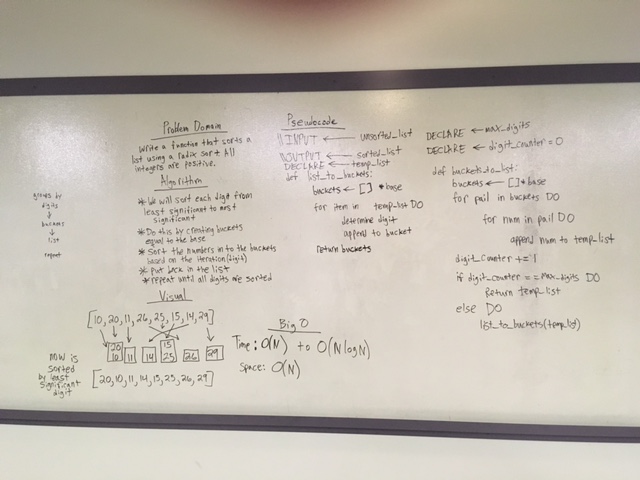 groups by
digits
↓
buckets
↓
list
↓
repeat
Problem Domain
Write a function that sorts a
list using a radix sort All
integers are positive.
Algorithm
* We will sort each digit from
least significant to most
significant
* Do this by creating buckets
equal to the base
* Sort the numbers into the buckets
based on the iteration (digit)
* Put back in the list
* repeat until all digits are sorted
Visual
[10, 20, 11, 26, 25, 15, 14, 29]
20
10
11
14
15
25
26
29
[20, 10, 11, 14, 15, 25, 26, 29]
now is
sorted
by least
significant
digit
Pseudocode
\\ INPUT ← unsorted_list
\\ OUTPUT ← sorted_list
DECLARE ← temp_list
def list_to_buckets:
buckets ← [] * base
for item in temp_list DO
determine digit
append to bucket
return buckets
Big O
Time: O(N) to O(N log N)
Space: O(N)
DECLARE ← max_digits
DECLARE ← digit_counter = 0
def buckets_to_list:
buckets ← [] * base
for pail in buckets DO
for num in pail DO
append num to temp_list
digit_counter += 1
if digit_counter == max_digits DO
Return temp_list
else DO
list_to_buckets(temp_list)